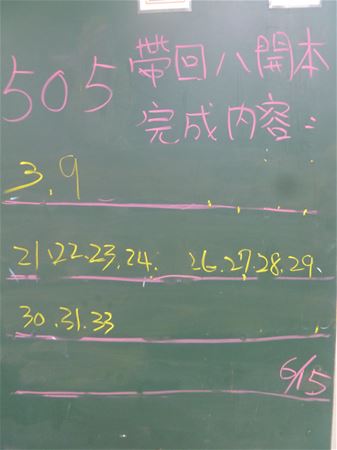 505 帶回八開本
完成內容：
3.9
21.22.23.24. 26.27.28.29.
30.31.33
6/15